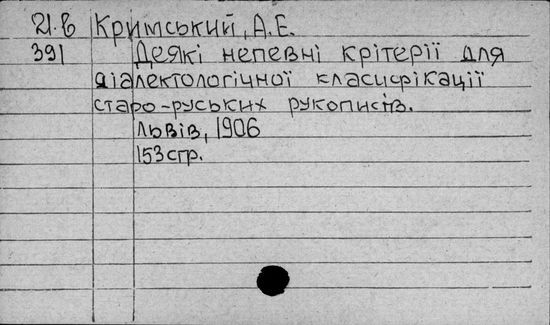 21.в Кримський, А.Е.
391 Деякі непевні крітерії для
діалектологічної класифікації
старо-руських рукописів.
Львів, 1906
153стр.